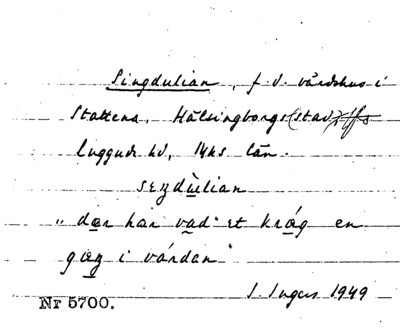 Singdulian, f.d. värdshus i
Stattena, Hälsingborgs (stad) lfs
Luggude hd, Mhs län.
seŋdùlian
"dær har vad. et kråg en
gæŋ i várdan"
I. Ingers 1949
Nr 5700.